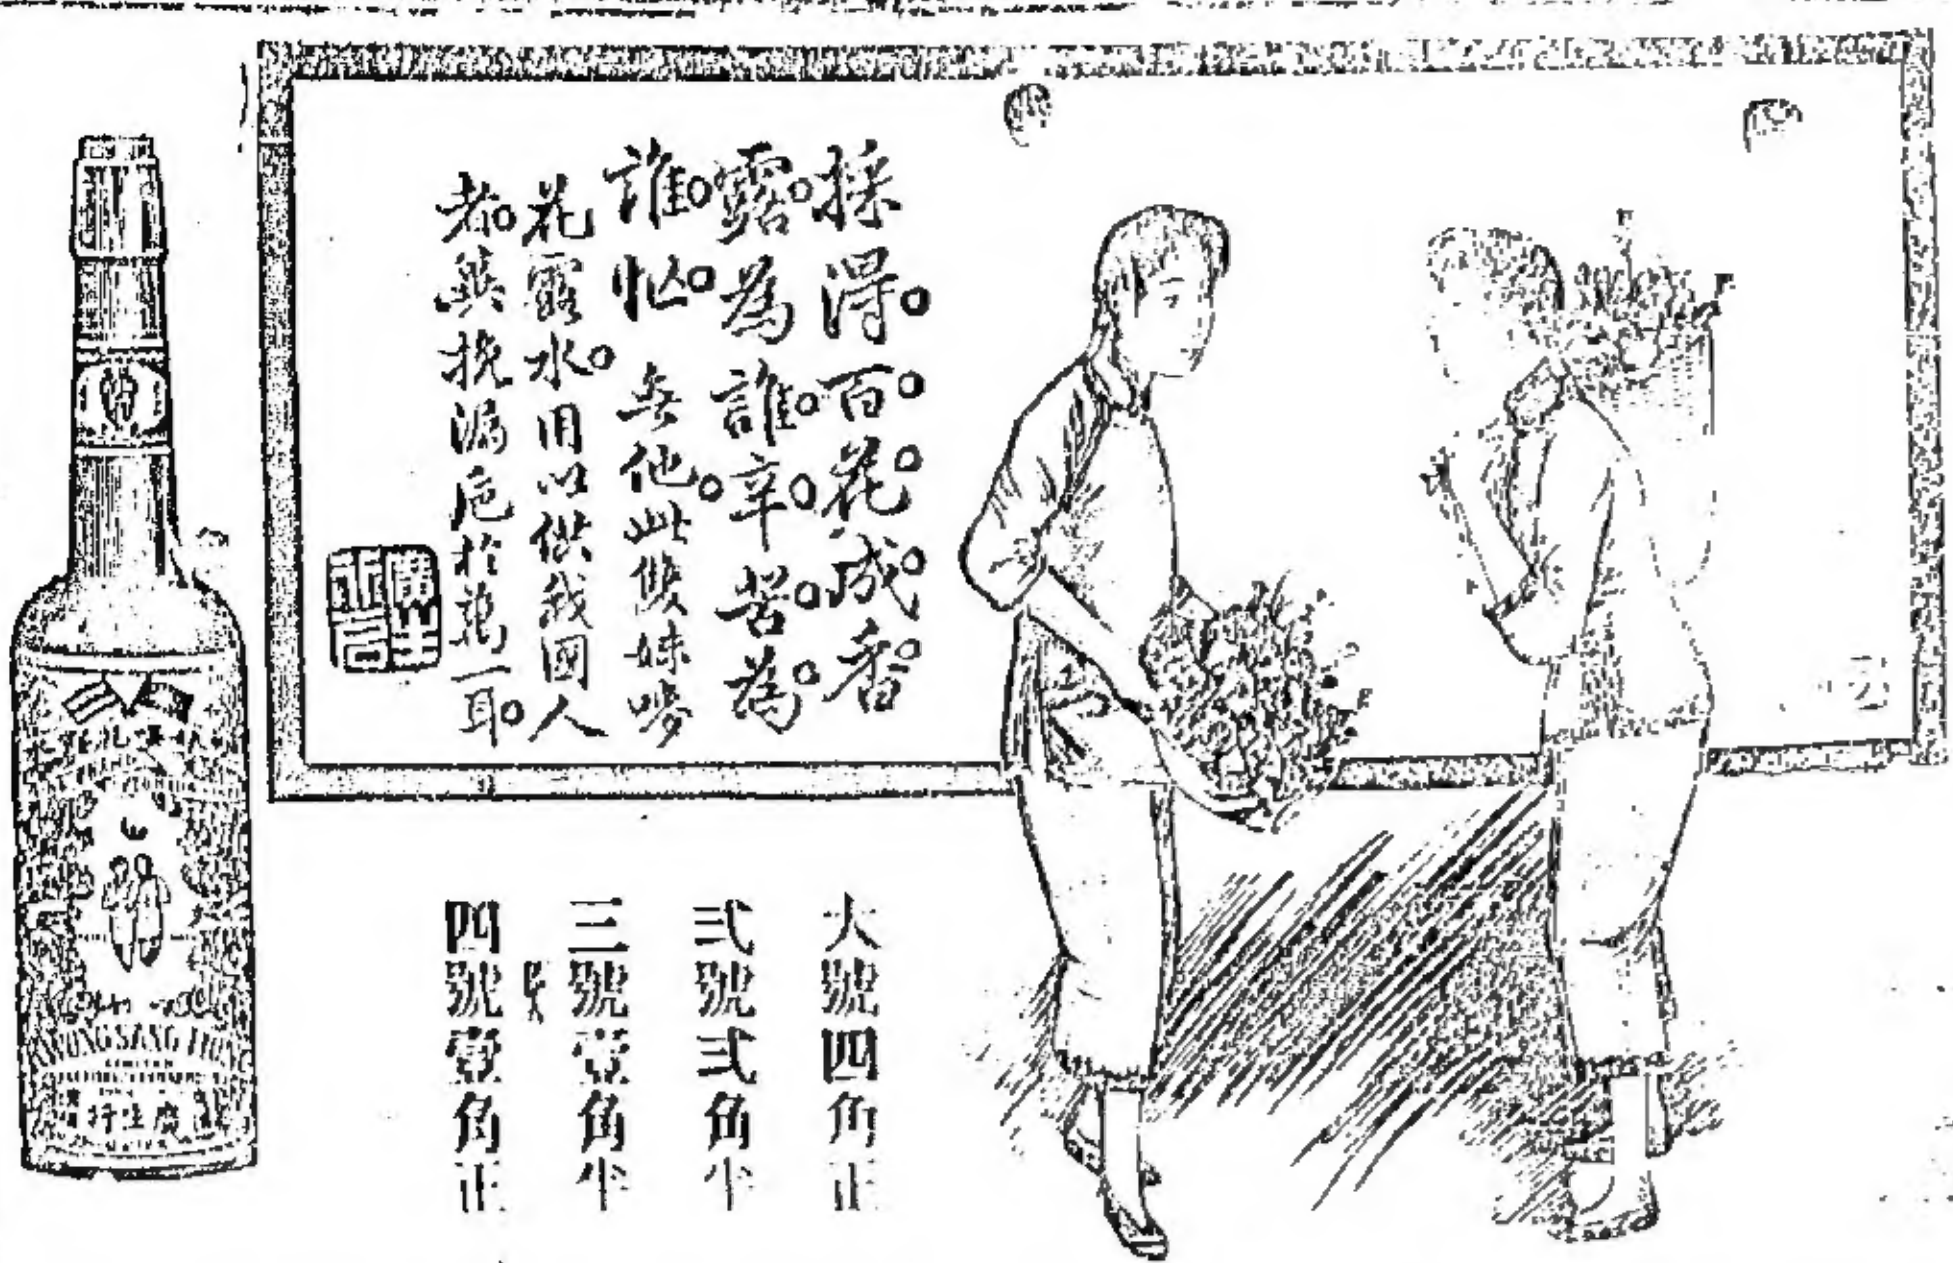 採得百花成香
露為誰辛苦為
誰忙 無他此雙妹嘜
花露水。用以供我國人
者。挽漏巵於萬一耳。
廣生行
大號四角正
弍號弍角半
三號壹角半
四號壹角正
KWONG SANG HONG
LIMITED
廣生行